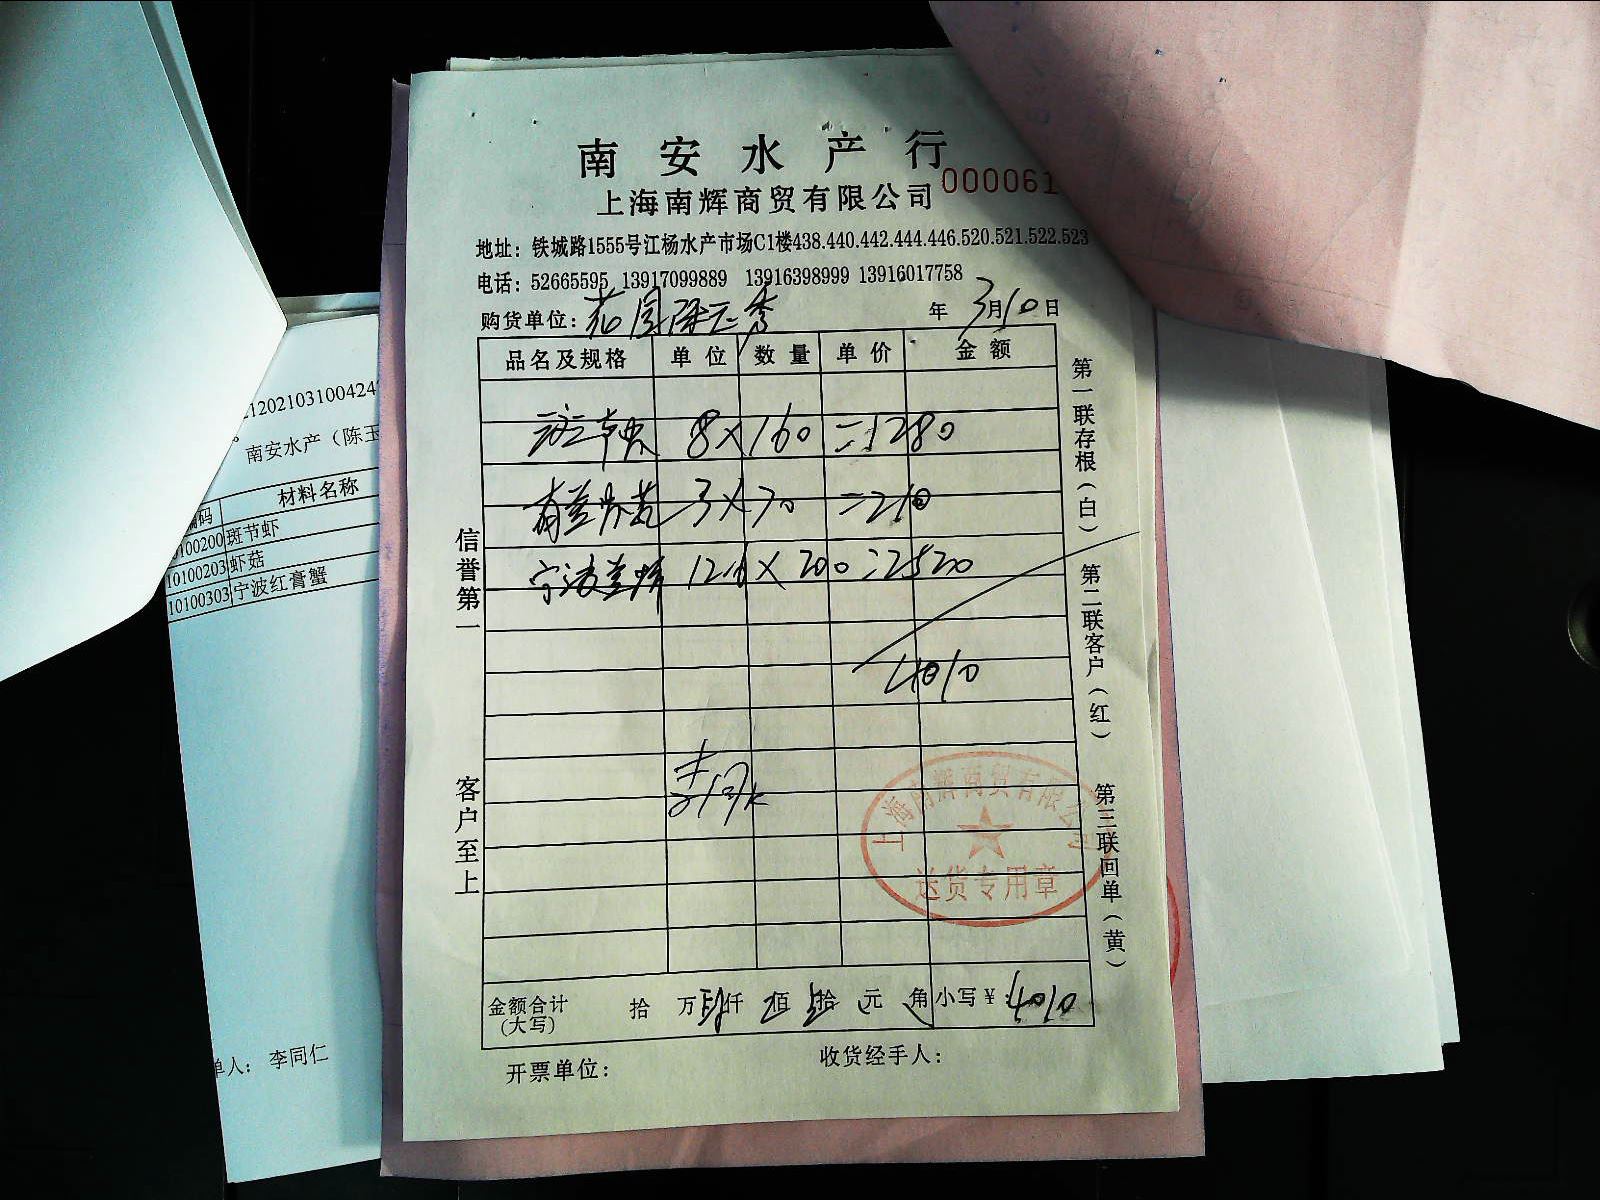 南安水产行
上海南辉商贸有限公司
000061
地址：铁城路1555号江杨水产市场C1楼438.440.442.444.446.520.521.522.523
电话：52665595 13917099889 13916398999 13916017758
购货单位：花园陈玉秀 年3月10日
品名及规格 单位 数量 单价 金额
斑节虾 8×160=1280
3×70=210
200=2520
4010
金额合计（大写） 拾 万肆仟 佰壹拾 元 角 小写￥：4010
开票单位： 收货经手人：
信誉第一
客户至上
第一联存根（白）
第二联客户（红）
第三联回单（黄）
上海南辉商贸有限公司
送货专用章
1202103100424
南安水产（陈玉
编码 材料名称
10100200 斑节虾
10100203 虾菇
10100303 宁波红膏蟹
单人： 李同仁